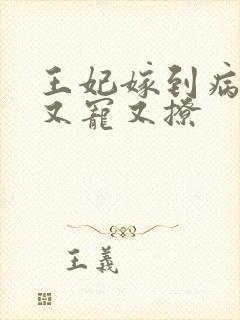 王妃嫁到病
又寵又撩
王義